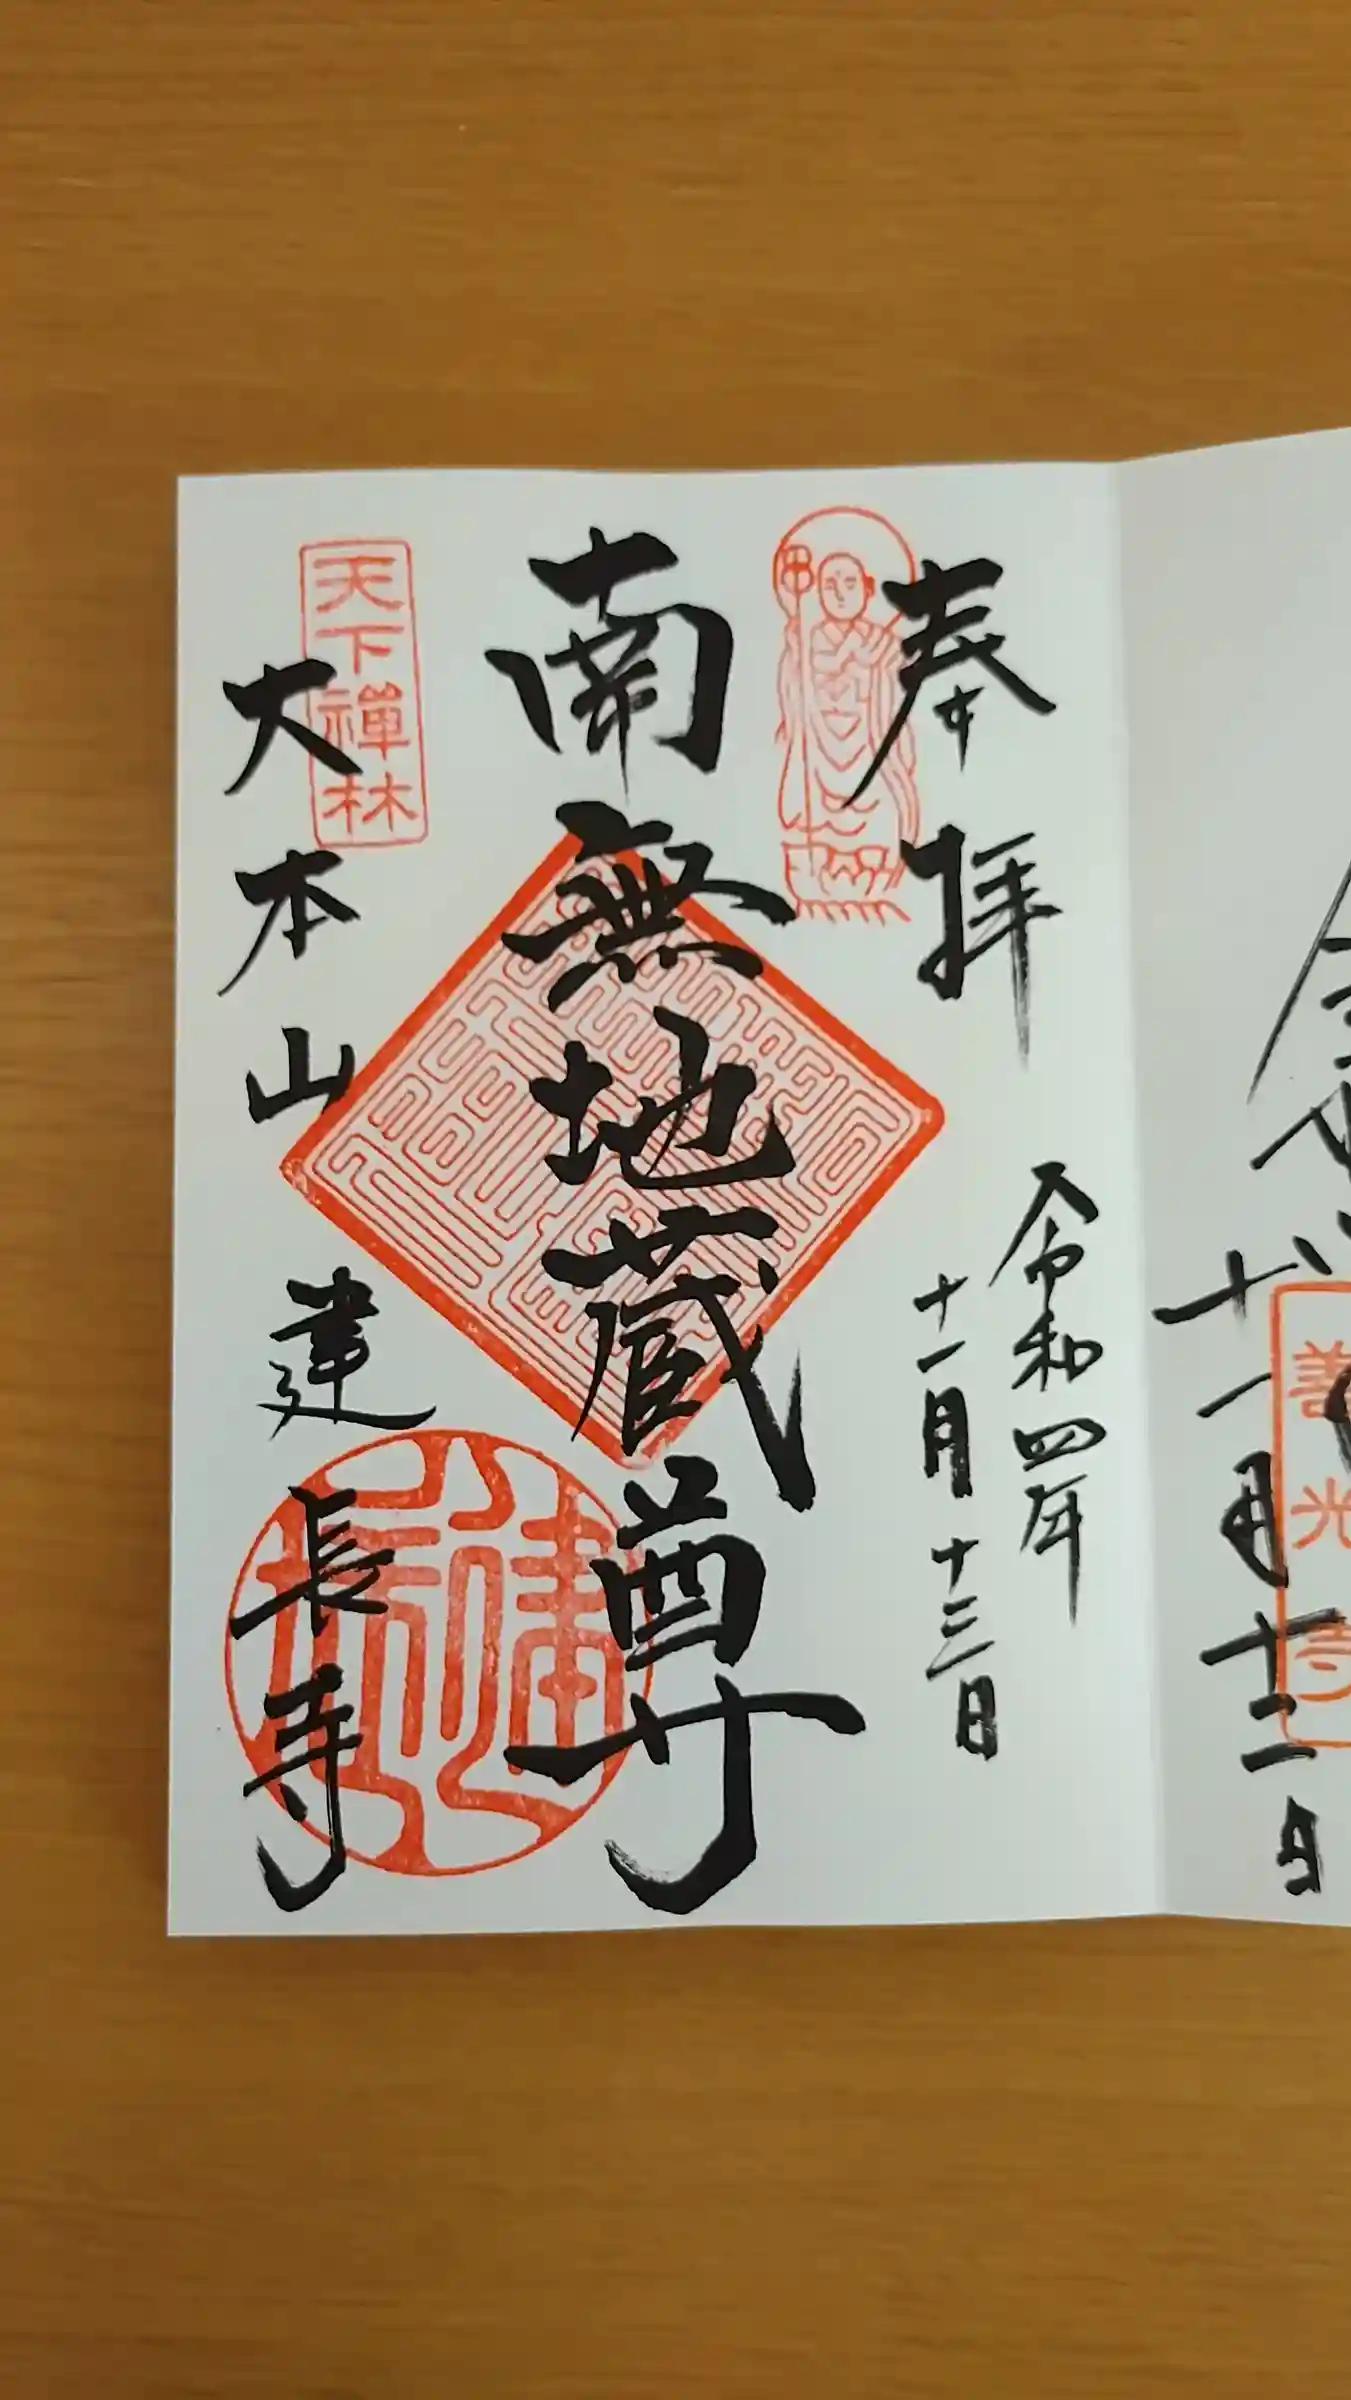 十一月十二日
善光寺
奉拝
令和四年
十一月十三日
南無地蔵尊
天下禅林
大本山建長寺